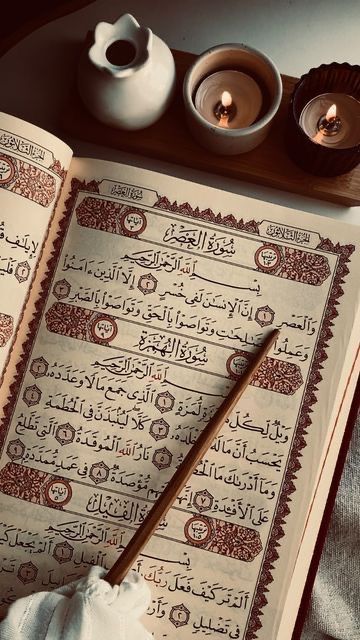 الجُزْءُ الثَّلَاثُونَ
سُورَةُ العَصْرِ
الجُزْءُ الثَّلَاثُونَ
سُورَةُ العَصْرِ
بِسْمِ ٱللَّهِ ٱلرَّحْمَٰنِ ٱلرَّحِيمِ
وَٱلْعَصْرِ ١ إِنَّ ٱلْإِنسَٰنَ لَفِى خُسْرٍ ٢ إِلَّا ٱلَّذِينَ ءَامَنُوا۟
وَعَمِلُوا۟ ٱلصَّٰلِحَٰتِ وَتَوَاصَوْا۟ بِٱلْحَقِّ وَتَوَاصَوْا۟ بِٱلصَّبْرِ ٣
سُورَةُ الهُمَزَةِ
بِسْمِ ٱللَّهِ ٱلرَّحْمَٰنِ ٱلرَّحِيمِ
وَيْلٌ لِّكُلِّ لُّمَزَةٍ ١ ٱلَّذِى جَمَعَ مَالًا وَعَدَّدَهُۥ ٢
يَحْسَبُ أَنَّ مَالَهُۥٓ ٣ كَلَّا لَيُنۢبَذَنَّ فِى ٱلْحُطَمَةِ ٤
وَمَآ أَدْرَىٰكَ مَا ٥ نَارُ ٱللَّهِ ٱلْمُوقَدَةُ ٦ ٱلَّتِى تَطَّلِعُ
عَلَى ٱلْأَفْـِٔدَةِ ٧ إِنَّهَا مُّؤْصَدَةٌ ٨ فِى عَمَدٍ مُّمَدَّدَةٍۭ ٩
سُورَةُ الفِيلِ
بِسْمِ ٱللَّهِ ٱلرَّحْمَٰنِ ٱلرَّحِيمِ
أَلَمْ تَرَ كَيْفَ فَعَلَ رَبُّكَ ٱلْفِيلِ ١ أَلَمْ يَجْعَلْ
فِى تَضْلِيلٍ ٢